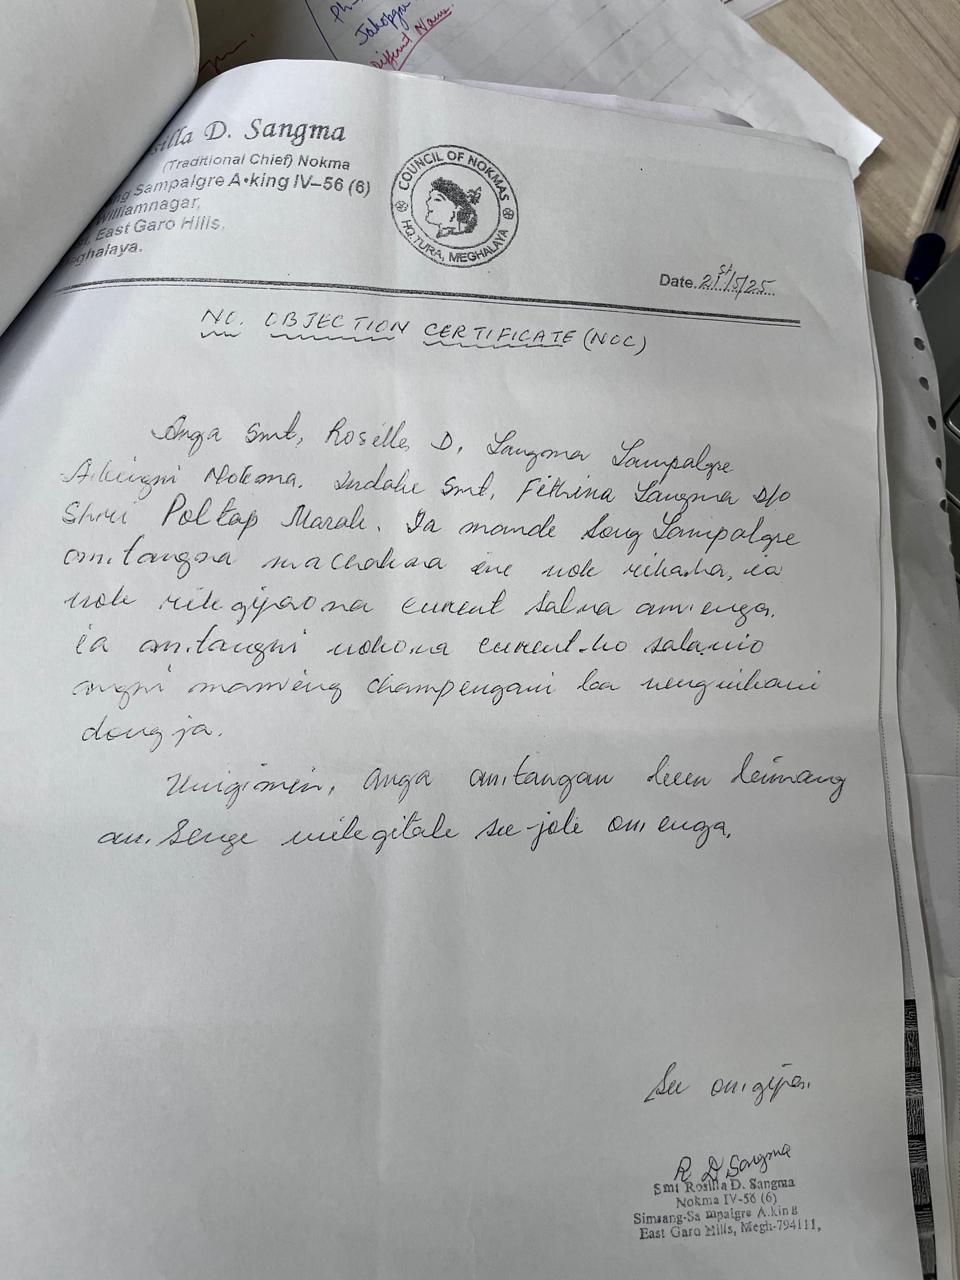 Ph-
Jakopgre
Different Name.
silla D. Sangma
(Traditional Chief) Nokma
ng Sampalgre A•king IV–56 (6)
Williamnagar,
East Garo Hills,
ghalaya.
COUNCIL OF NOKMAS
HQ. TURA, MEGHALAYA
Date. 21st/5/25
NO. OBJECTION CERTIFICATE (NOC)
Anga Smt, Rosilla D. Sangma Sampalgre
A.kingni Nokma. Indake Smt, Fithina Sangma D/o
Shri Poltap Marak. Ia mande Song Sampalgre
an.tangna machakna ine nok rikaha, ia
nok rikgipaona current salna am.enga.
ia an.tangni nokona current.ko salanio
angni mamung champengani ba nengnikani
dongja.
Unigimin, anga an.tangan
an.senge see-jole on.enga.
See on.gipa.
R D Sangma
Smt Rosilla D. Sangma
Nokma IV-56 (6)
Simsang-Sa mpalgre A.king
East Garo Hills, Megh-794111,